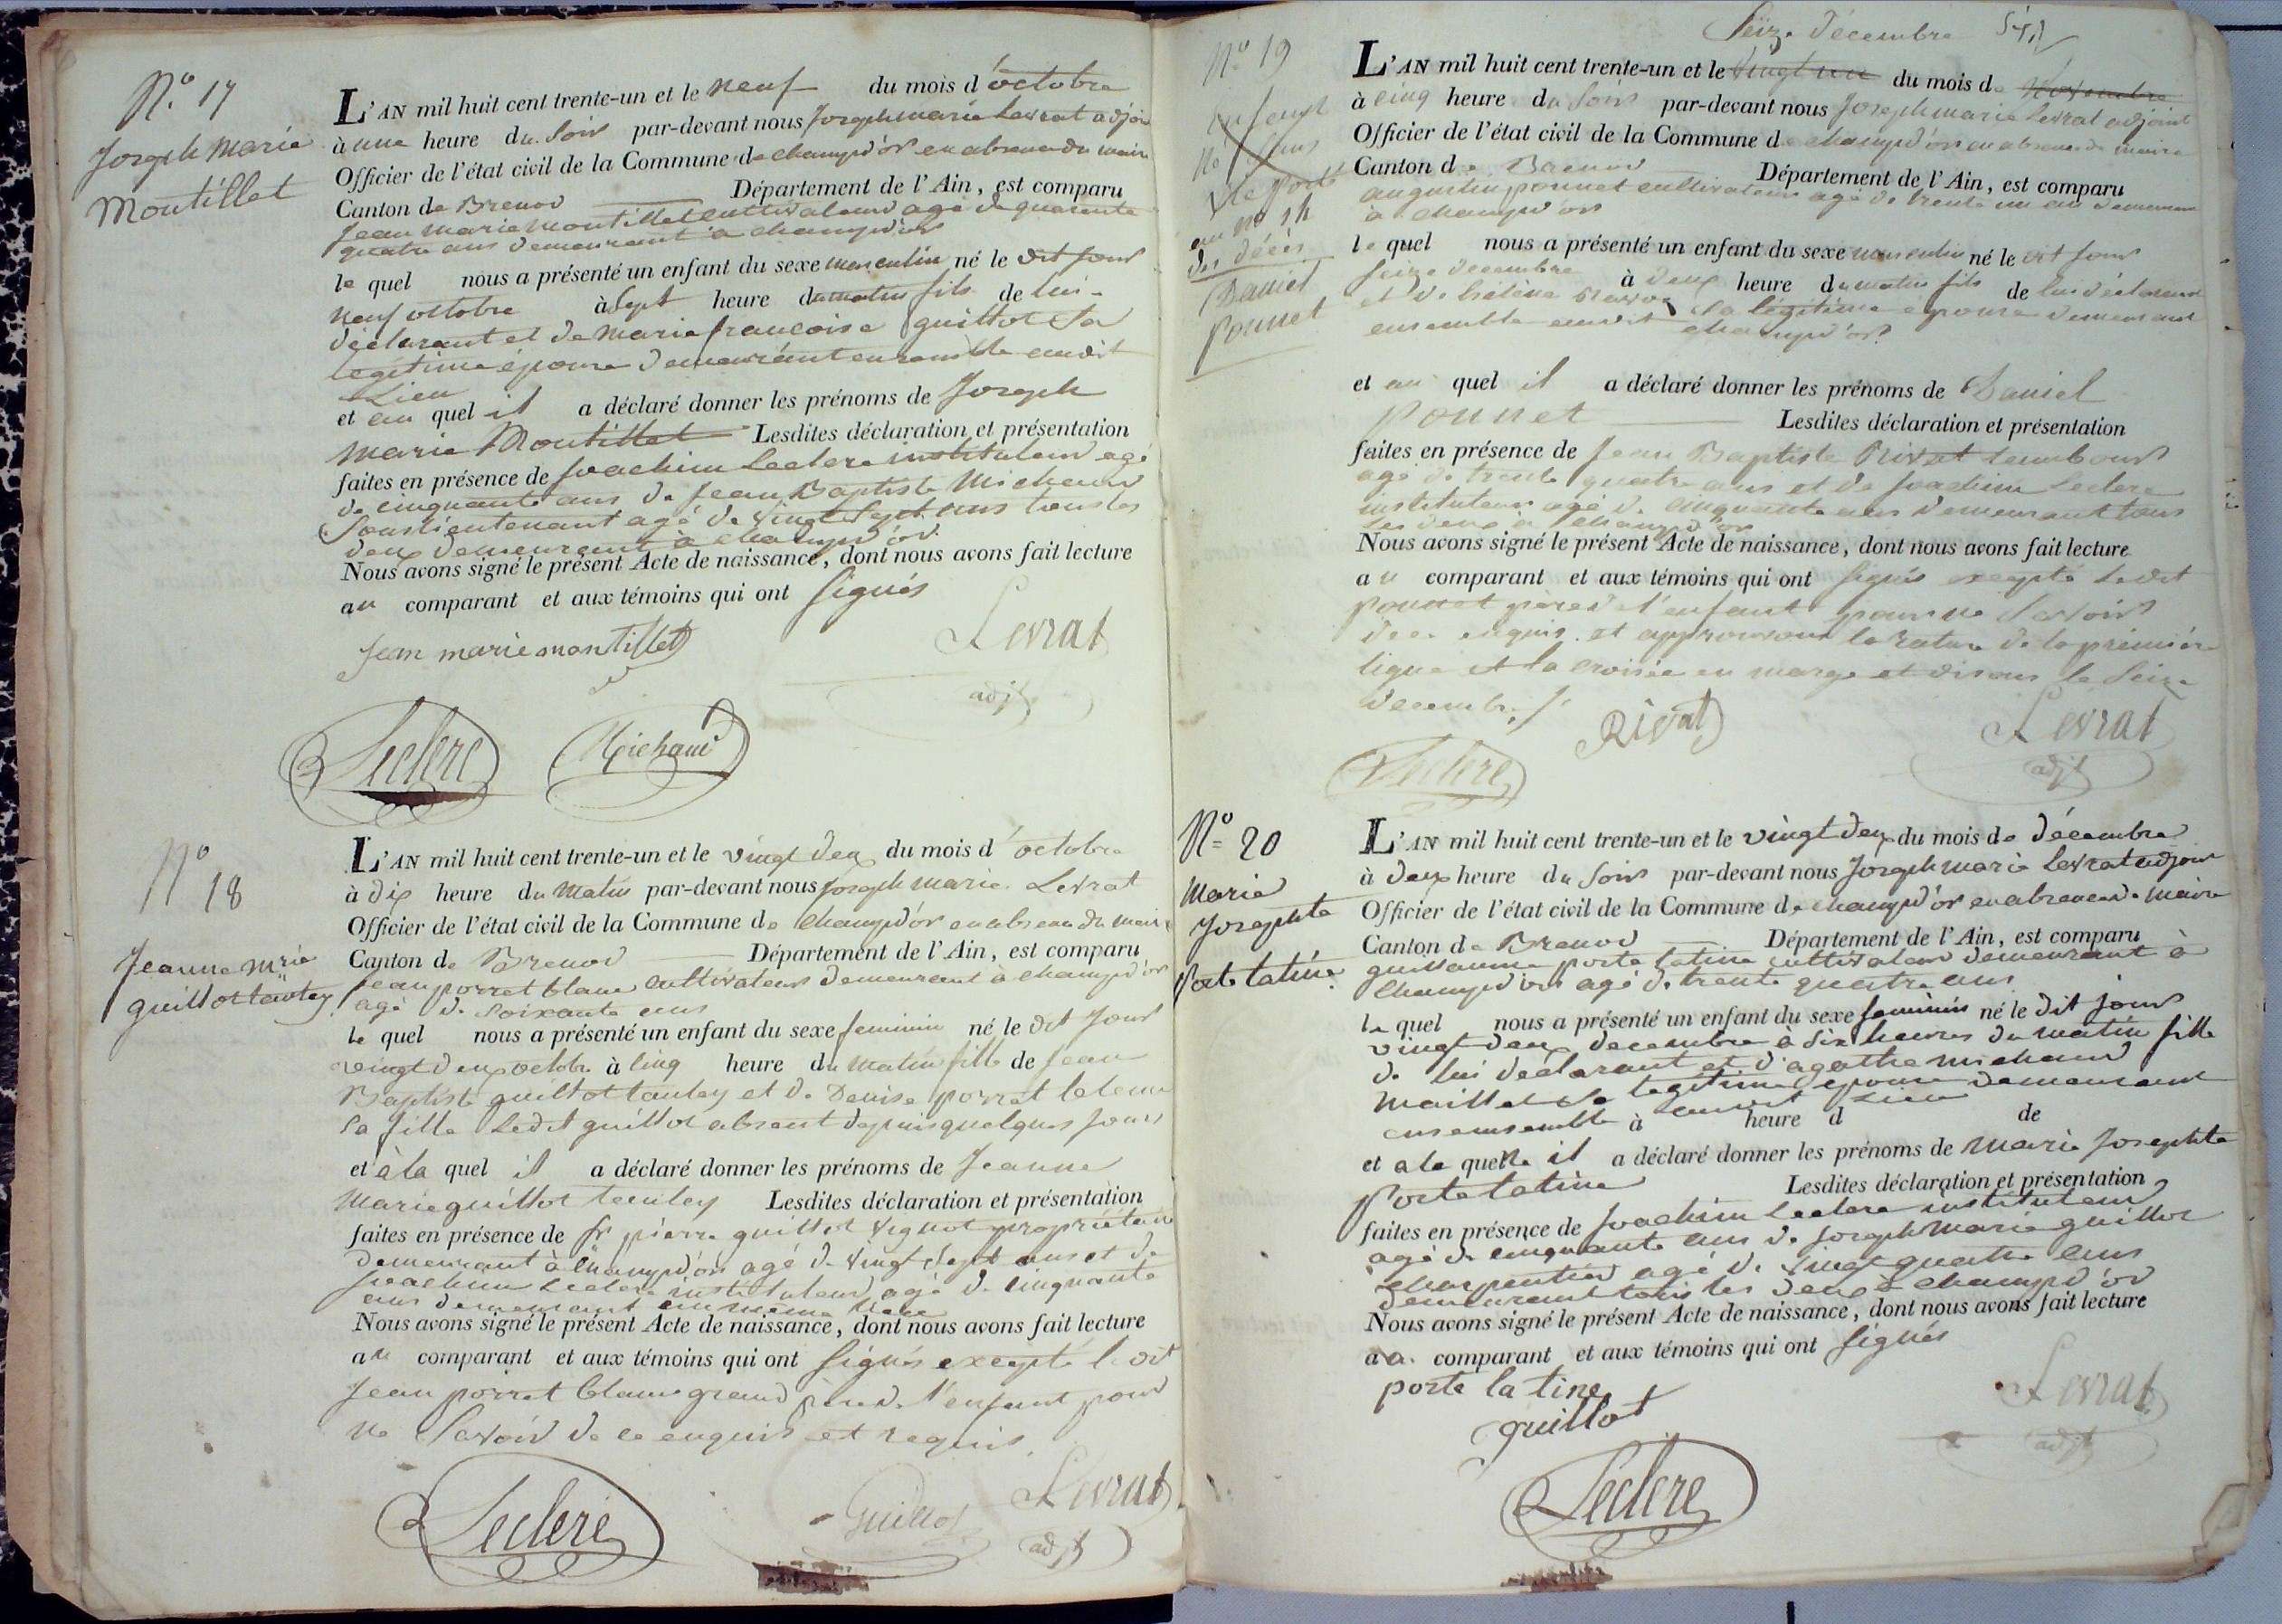 N.o 17
Joseph Marie
Montillet
L'AN mil huit cent trente-un et le neuf du mois d'octobre
à une heure du Soir par-devant nous Joseph marie Levrat adjoi
Officier de l'état civil de la Commune de champd'or en absence du maire
Canton de Brenod Département de l'Ain, est comparu
Jean marie montillet cultivateur agé de quarante
quatre ans demeurant à champd'or
le quel nous a présenté un enfant du sexe masculin né le dit jour
neuf octobre à Sept heure du matin fils de lui
déclarant et de marie françoise guillot sa
legitime épouse demeurant ensemble audit
Lieu
et au quel il a déclaré donner les prénoms de Joseph
marie Montillet Lesdites déclaration et présentation
faites en présence de Joachim Leclere instituteur agé
de cinquante ans de Jean Baptiste Michaud
Souslieutenant agé de vingt Sept ans tous les
deux demeurant à champd'or
Nous avons signé le présent Acte de naissance, dont nous avons fait lecture
au comparant et aux témoins qui ont signés
Jean marie montillet
Levrat
adjt
Leclere
Michaud
N.o
18
Jeanne Mrie
guillot tauley
L'AN mil huit cent trente-un et le vingt deux du mois d'octobre
à dix heure du matin par-devant nous Joseph marie Levrat
Officier de l'état civil de la Commune de champd'or en absence du maire
Canton de Brenod Département de l'Ain, est comparu
Jean porret blanc cultivateur demeurant à champd'or
agé de soixante ans
le quel nous a présenté un enfant du sexe feminin né le dit jour
vingt deux octobre à cinq heure du matin fille de Jean
Baptiste guillot tauley et de Denise porret blanc
sa fille Ledit guillot absent depuis quelques jours
et à la quel il a déclaré donner les prénoms de Jeanne
Marie guillot tauley Lesdites déclaration et présentation
faites en présence de fr pierre guillot vignot propriétaire
demeurant à champd'or agé de vingt sept ans et de
joachim Leclere instituteur agé de cinquante
ans demeurant au même lieu
Nous avons signé le présent Acte de naissance, dont nous avons fait lecture
au comparant et aux témoins qui ont signés excepté le dit
Jean porret blanc grand père de l'enfant pour
ne Savoir de ce enquis et requis.
Leclere
Guillot
Levrat
adjt
Seize décembre
N.o 19
enfant
né sans
vie porté
au no 14
des décès
Daniel
Ponnet
L'AN mil huit cent trente-un et le vingt un du mois de Novembre
à cinq heure du Soir par-devant nous Joseph marie Levrat adjoint
Officier de l'état civil de la Commune de champd'or en absence du maire
Canton de Brenod Département de l'Ain, est comparu
augustin ponnet cultivateur agé de trente un an demeurant
à champd'or
le quel nous a présenté un enfant du sexe masculin né le dit jour
seize decembre à deux heure du matin fils de lui déclarant
et de hélène sa légitime épouse demeurant
ensemble audit champd'or
et au quel il a déclaré donner les prénoms de Daniel
Ponnet Lesdites déclaration et présentation
faites en présence de Jean Baptiste Rivat tambour
agé de trente quatre ans et de joachim Leclere
instituteur agé de cinquante ans demeurant tous
les deux à champd'or
Nous avons signé le présent Acte de naissance, dont nous avons fait lecture
au comparant et aux témoins qui ont signés excepté ledit
ponnet père de l'enfant pour ne Savoir
de ce enquis. et approuvons la rature de la première
ligne et la croisée en marge et disons le seize
decembre
Rivat
Levrat
adjt
Leclere
N.o 20
Marie
Josephte
Porte latine
L'AN mil huit cent trente-un et le vingt deux du mois de décembre
à deux heure du Soir par-devant nous Joseph marie Levrat adjoint
Officier de l'état civil de la Commune de champd'or en absence de maire
Canton de Brenod Département de l'Ain, est comparu
guillaume porte latine cultivateur demeurant à
champd'or agé de trente quatre ans
le quel nous a présenté un enfant du sexe feminin né le dit jour
vingt deux decembre à Six heures du matin fille
de lui déclarant et d'agathe michaud
maillet Sa legitime épouse demeurant
ensemsemble à audit Lieu heure d de
et a la quelle il a déclaré donner les prénoms de marie Josephte
Porte latine Lesdites déclaration et présentation
faites en présence de Joachim Leclere instituteur
agé de cinquante ans de Joseph Marie guillot
charpentier agé de vingt quatre ans
demeurant tous les deux à champd'or
Nous avons signé le présent Acte de naissance, dont nous avons fait lecture
au comparant et aux témoins qui ont signés
porte la tine
guillot
Levrat
adjt
Leclere